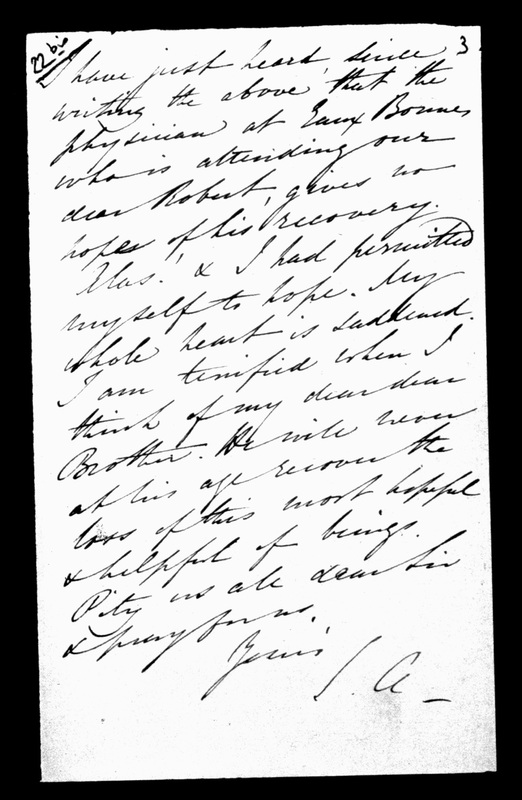 22 bis
3
I have just heard, since
writing the above that the
physician at Eaux Bonnes
who is attending our
dear Robert, gives no
hopes of his recovery.
Alas! & I had permitted
myself to hope. My
whole heart is saddened.
I am terrified when I
think of my dear dear
Brother. He will never
at his age recover the
loss of this most hopeful
& helpful of beings.
Pity us all dear Sir
& pray for us.
Yours
S. A_